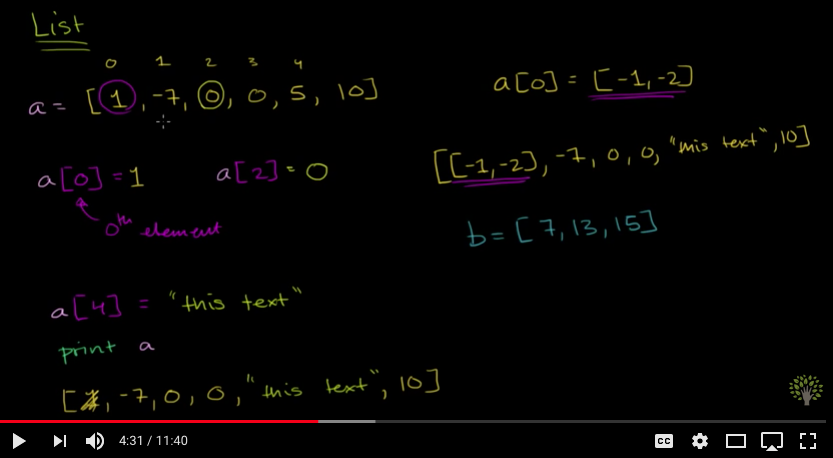 List
0 1 2 3 4
a = [1, -7, 0, 0, 5, 10]
a[0] = 1
a[2] = 0
0th element
a[4] = "this text"
print a
[, -7, 0, 0, "this text", 10]
a[0] = [-1, -2]
[[-1, -2], -7, 0, 0, "this text", 10]
b = [7, 13, 15]
4:31 / 11:40
CC